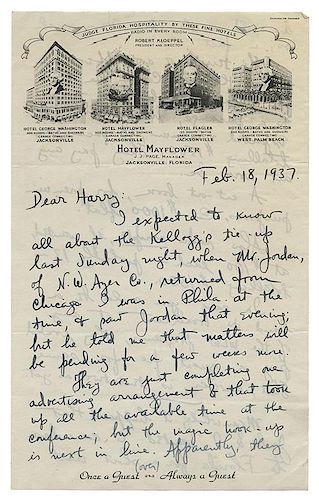 JUDGE FLORIDA HOSPITALITY BY THESE FINE HOTELS
RADIO IN EVERY ROOM
ROBERT KLOEPPEL
PRESIDENT AND DIRECTOR
HOTEL GEORGE WASHINGTON
JACKSONVILLE
HOTEL MAYFLOWER
JACKSONVILLE
HOTEL FLAGLER
JACKSONVILLE
HOTEL GEORGE WASHINGTON
WEST PALM BEACH
HOTEL MAYFLOWER
J. J. PAGE, MANAGER
JACKSONVILLE, FLORIDA
Feb. 18, 1937.
Dear Harry:
I expected to know
all about the Kelloggs tie-up
last Sunday night, when Mr. Jordan,
of N.W. Ayer Co., returned from
Chicago. I was in Phila. at the
time, & saw Jordan that evening;
but he told me that matters will
be pending for a few weeks more.
They are just completing one
advertising arrangement & that took
up all the available time at the
conference; but the magic hook-up
is next in line. Apparently, they
(over)
ONCE A GUEST ALWAYS A GUEST